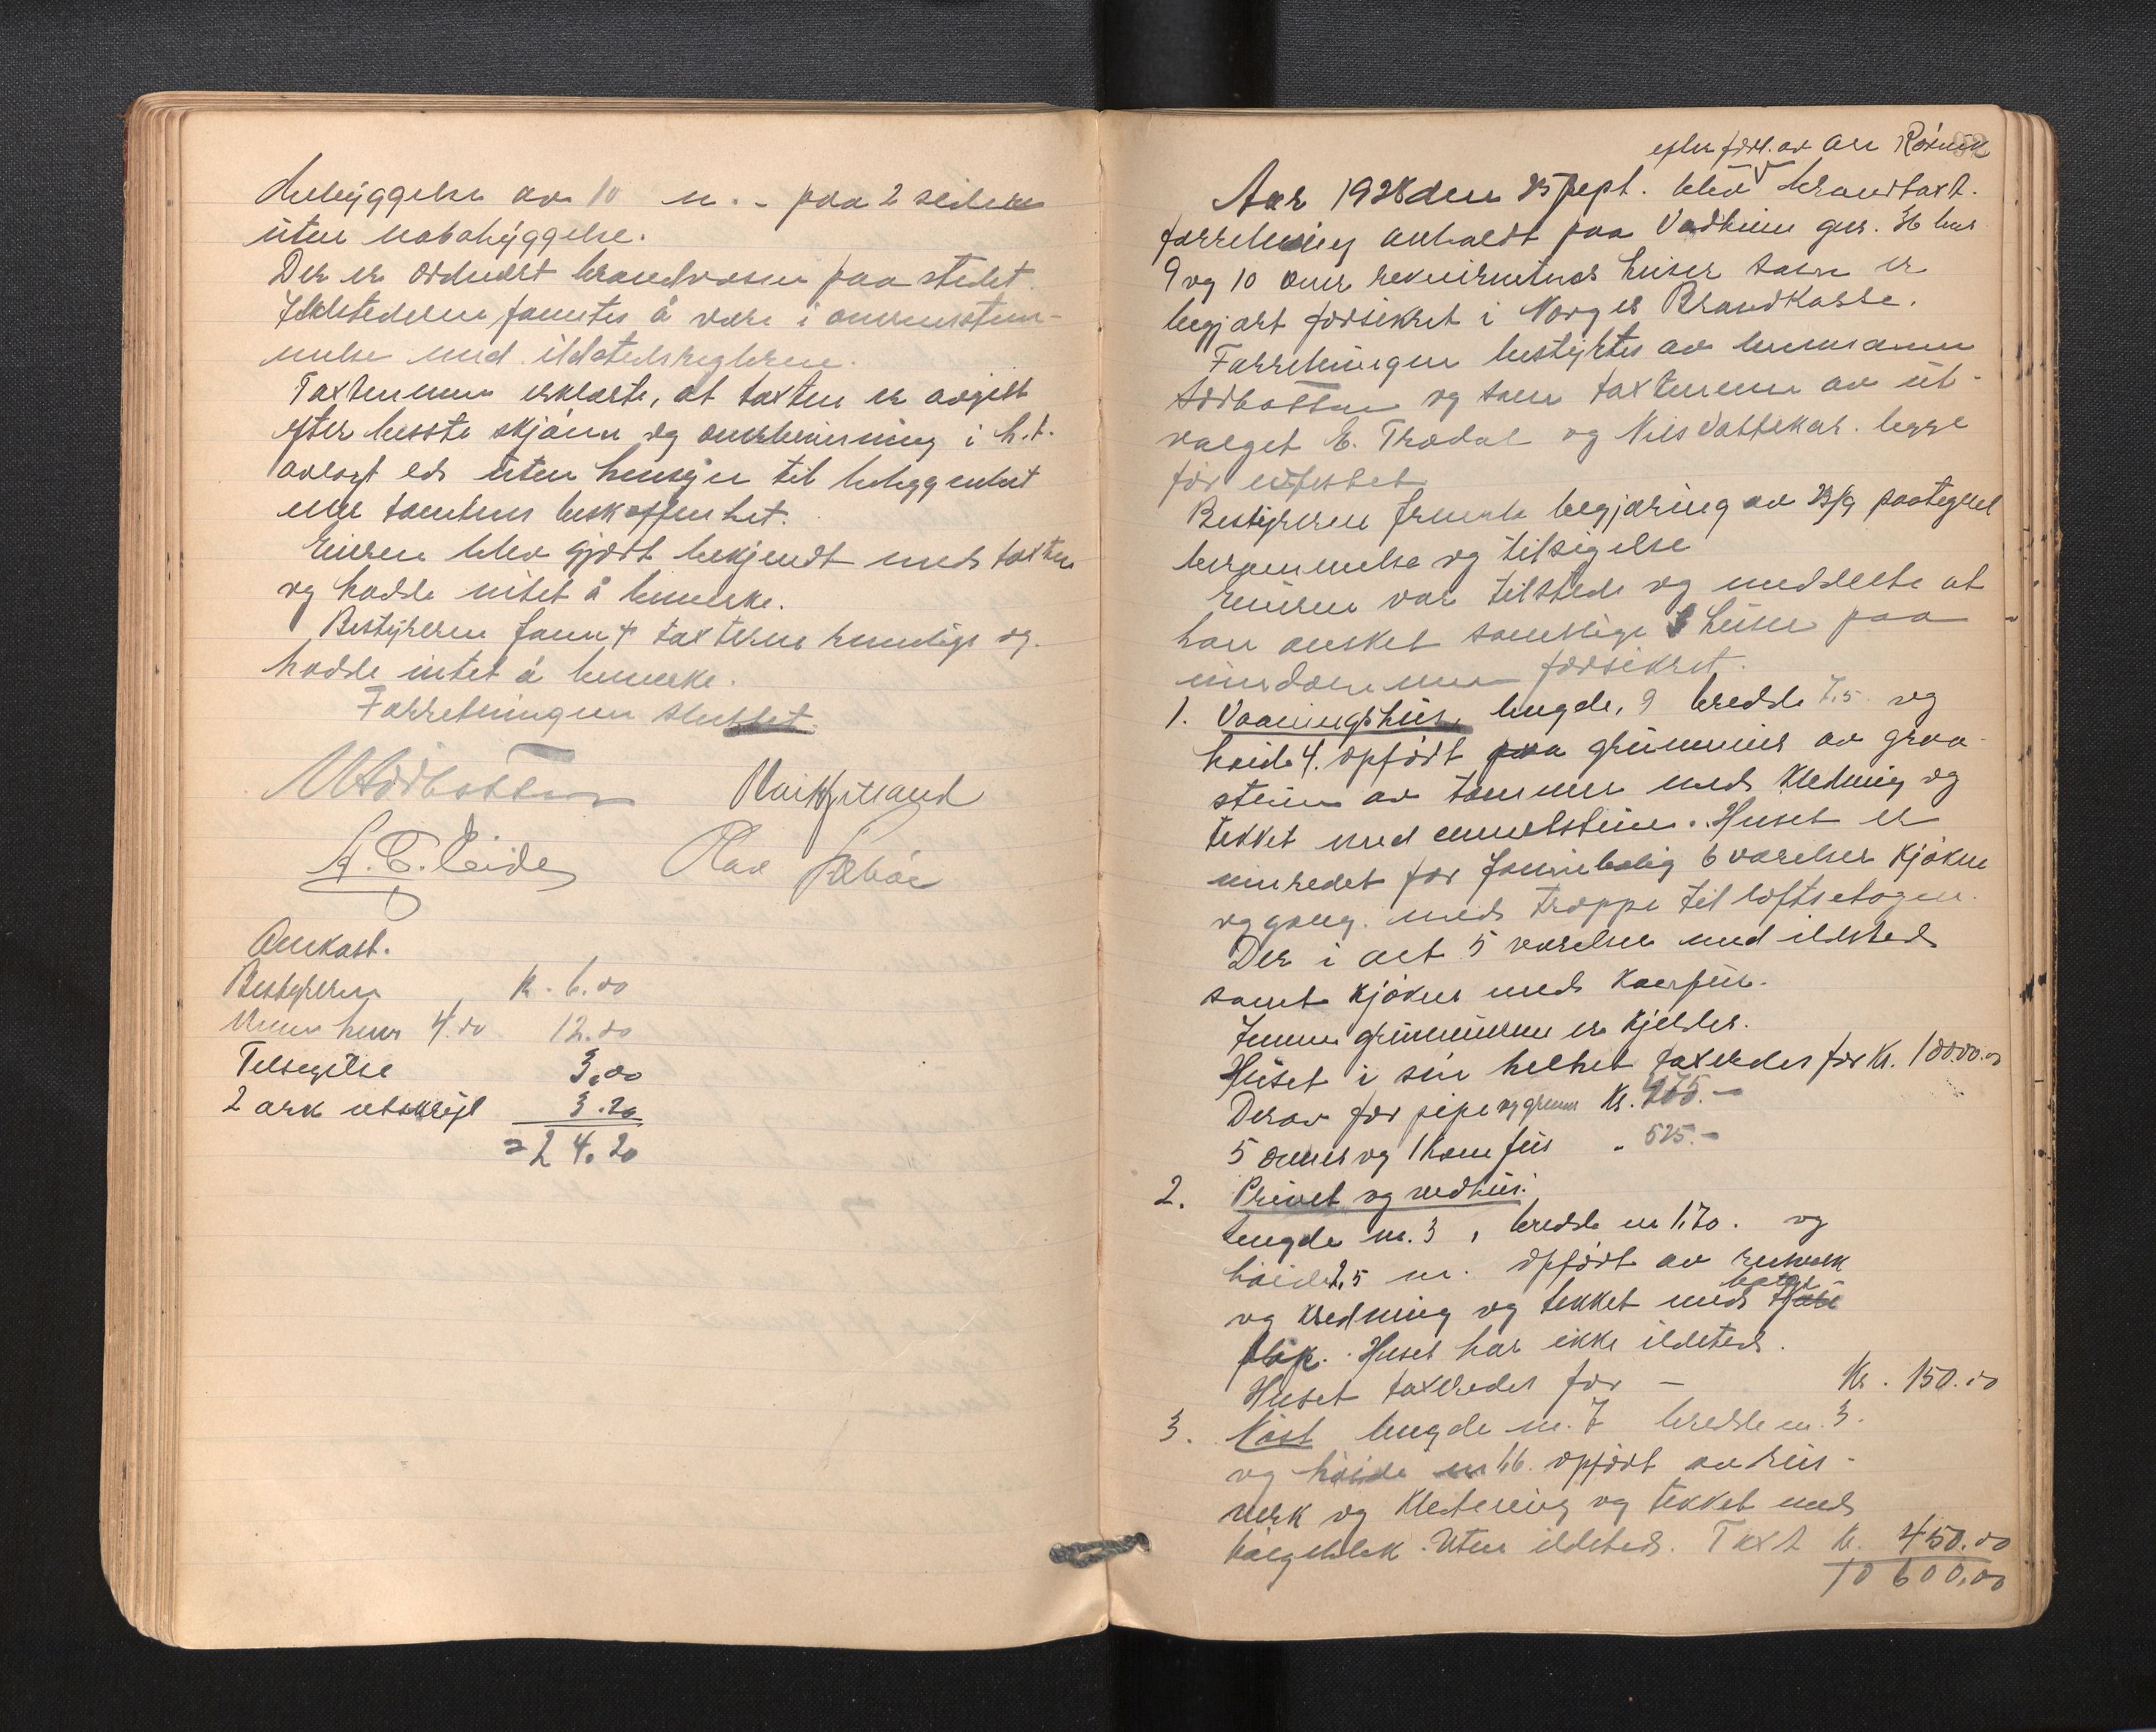 bebyggelse av 10 m. - paa 2 sider
uten nabobyggelse.
Der er ordnært brandvæsen paa stedet.
Ildstederne fantes å være i overensstem-
melse med ildstedsreglerne.
Taxtmenne erklærte, at taxten er avgitt
efter beste skjønn og overbevisning i h.t.
avlagt ed uten hensyn til beliggenhet
eller tomtens beskaffenhet.
Eieren blev gjort bekjendt med taxten
og hadde intet å bemerke.
Bestyreren fant taxterne rimelige og
hadde intet å bemerke.
Forretningen sluttet.
A. E. Eide Olav Sæbøe
Omkost.
Bestyreren K. 6.00
4.00 12.00
Tilsigelse 3.00
2 ark utskrift 3.20
= 24.20
efter forl. av
Aar 1928 den 25 sept. blev brandtaxt.
forretning avholdt paa Vadheim gnr. 36 bnr
9 og 10 over rekvirentens huser som er
begjært forsikret i Norges Brandkasse.
Forretningen bestyrtes av lensmann
Nordbotten og som taxtmenn av ut-
valget E. Trædal og Nils Vattekar. begge
før edfestet
Bestyreren fremla begjæring av 23/9 paategnet
berammelse og tilsigelse
Eieren var tilstede og meddelte at
han ønsket samtlige 3 huser paa
eiendommen forsikret.
1. Vaaningshus, lengde, 9 bredde 7,5 og
høide 4. opført paa grunnmur av graa-
stein av tømmer med kledning og
tekket med enkeltstein. Huset er
innredet for familiebolig 6 værelser kjøken
og gang. med trappe til loftsetagen.
Der i alt 5 værelser med ildsted
samt kjøken med komfur.
Innen grunnmuren er kjelder.
Huset i sin helhet taxeredes for Kr. 10000.00
Derav for pipe og grunnm Kr. 475.-
5 ovner og 1 komfur " 525.-
2. Privet og vedhus.
Lengde m. 3, bredde m 1,70. og
høide 2,5 m. opført av reisverk
og kledning og tekket med
Huset har ikke ildsted.
Huset taxeredes for - Kr. 150.00
3. Nøst lengde m. 7 bredde m. 3.
og høide m 4,6. opført av reis-
verk og kledning og tekket med
bølgeblik. Uten ildsted. Taxt K. 450.00
10 600.00